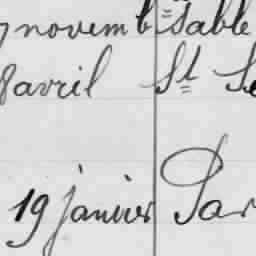 novemb sable
avril St
19 janvier Par